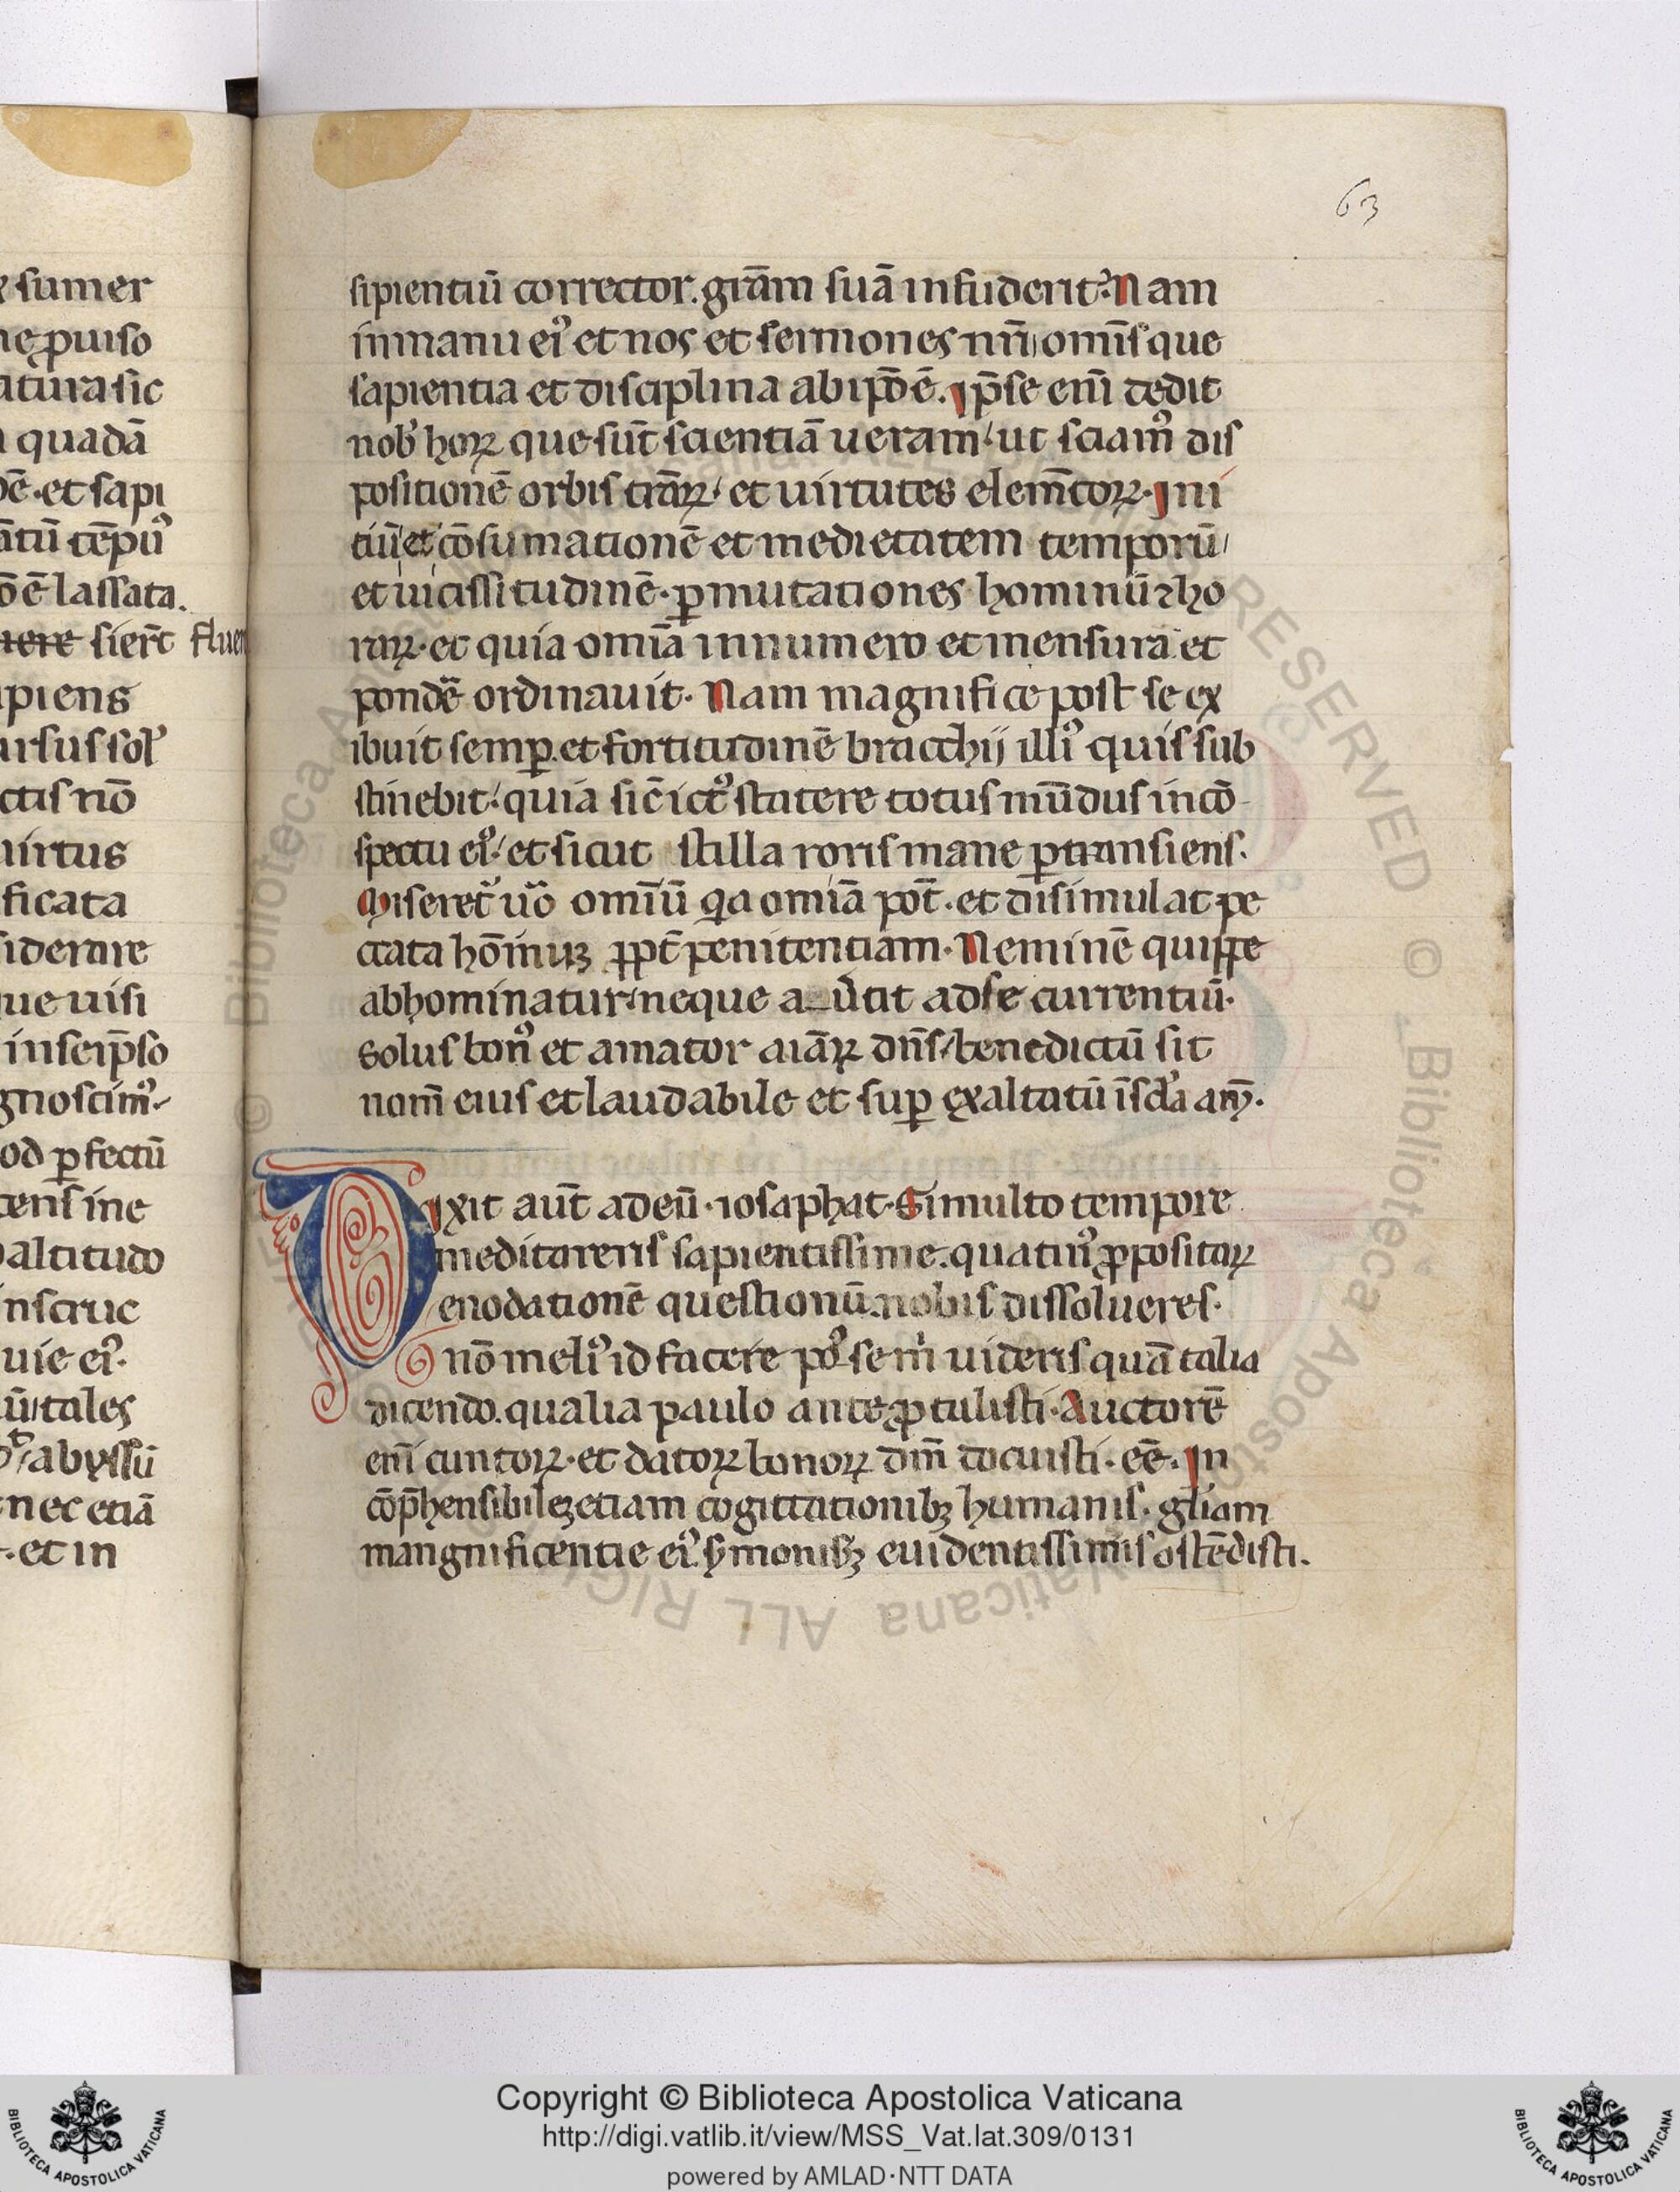 63
sumer
puiso
atura sic
quadā
et sapi
ātū tēpꝰ
ō ē lassata.
sierēt fluen
piens
ursus sol
ctis nō
uirtus
ficata
siderare
ue uisi
in seip̄so
gnoscimꝰ
od ꝑfectū
cens ine
altitudo
nstruc
uie eiꝰ.
tales
abyssū
nec etiā
et in
sipientiū corrector. grām suā infuderit. Nam
in manu eiꝰ et nos et sermones nr̄i omīsque
sapientia et disciplina ab ipō ē. Ip̄se enī dedit
nob̾ hoꝝ que sūt scientiā ueram ut sciamꝰ dis
positionē orbis trāꝝ et uirtutes elem̄toꝝ. Ini
tiū et cōsumationē et medietatem temporū
et uicissitudinē. ꝑmutationes hominū ⁊ ho
raꝝ. et quia omīa in numero et mensura et
ponder̄ ordinauit. Nam magnifice post se ex
ibuit semꝑ. et fortitudinē bracchij illiꝰ quis sub
stinebit. quia sic̄ ictꝰ statere totus mūdus in cō
spectu eiꝰ. et sicut stilla roris mane ꝑtransiens.
Miseret̄ uō omīū qa omīa pot̄. et disimulat pe
ccata hōīnuꝫ ꝓpt̄ penitentiam. Neminē quippe
abhominatur neque auertit ad se currentiū.
solus bonꝰ et amator aīāꝝ dn̄s benedictū sit
nom̄ eius et laudabile et suꝑ exaltatū ī sc̄la am̄.
Dixit aūt ad eū. iosaphat. Si multo tempore
meditareris sapientissime. quatinꝰ ꝓpositaꝝ
enodationē questionū nobis dissolueres.
nō meliꝰ id facere poꝰse m̄ uideris quā talia
dicendo. qualia paulo ante ꝓtulisti. Auctorē
enī cunctoꝝ. et datoꝝ bonoꝝ dm̄ docuisti. eē. In
cōp̄hensibileꝫ etiam cogittationibꝫ humanis. gl̄iam
mangnificentie eiꝰ. s̾monibꝫ euidentissimis ostēdisti.
Copyright © Biblioteca Apostolica Vaticana
http://digi.vatlib.it/view/MSS_Vat.lat.309/0131
powered by AMLAD·NTT DATA
BIBLIOTECA APOSTOLICA VATICANA
BIBLIOTECA APOSTOLICA VATICANA